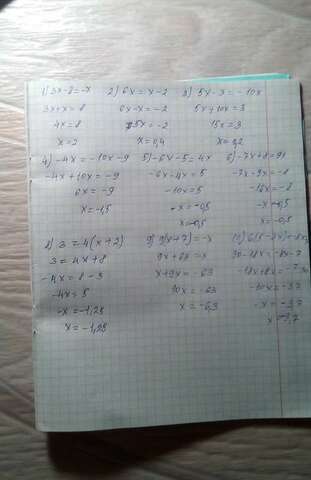 1) 3x-8=-x 2) 6x=x-2 3) 5x-3=-10x
3x+x=8 6x-x=-2 5x+10x=3
4x=8 5x=-2 15x=3
x=2 x=0,4 x=0,2
4) -4x=-10x-9 5) -6x-5=4x 6) -7x+8=9x
-4x+10x=-9 -6x-4x=5 -7x-9x=-8
6x=-9 -10x=5 -16x=-8
x=-1,5 -x=-0,5 -x=-0,5
x=-0,5 x=-0,5
8) 3=4(x+2) 9) 9(x+7)=-x 10)
3=4x+8 9x+63=-x 30-18x=-8x-7
-4x=8-3 9x+x=-63 -18x+8x=-7
-4x=5 10x=-63 -10x=-37
-x=-1,25 x=-6,3 -x=-3,7
x=-1,25 x=3,7